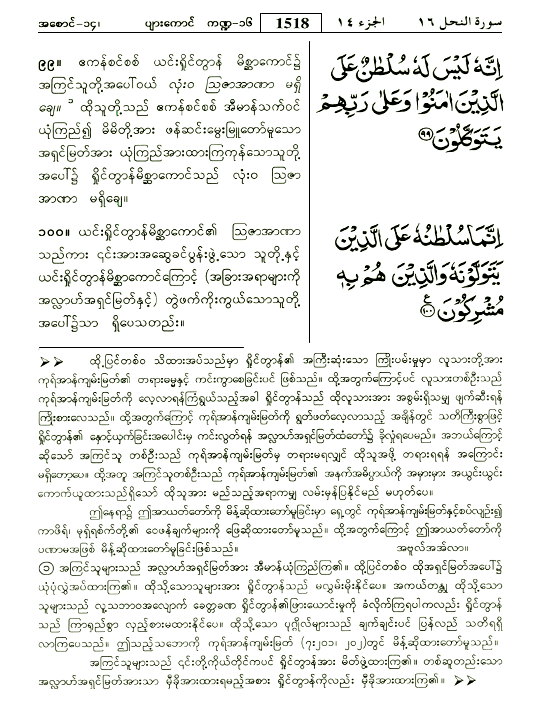 အစောင်-၁၄၊ ပျားကောင် ကဏ္ဍ-၁၆ 1518 الجزء ١٤ سورة النحل ١٦
၉၉။ ဧကန်စင်စစ် ယင်းရှိုင်တွာန် မိစ္ဆာကောင်၌
အကြင်သူတို့အပေါ်ဝယ် လုံးဝ ဩဇာအာဏာ မရှိ
ချေ။ ် ထိုသူတို့သည် ဧကန်စင်စစ် အီမာန်သက်ဝင်
ယုံကြည်၍ မိမိတို့အား ဖန်ဆင်းမွေးမြူတော်မူသော
အရှင်မြတ်အား ယုံကြည်အားထားကြကုန်သောသူတို့
အပေါ်၌ ရှိုင်တွာန်မိစ္ဆာကောင်သည် လုံးဝ ဩဇာ
အာဏာ မရှိချေ။
اِنَّهٗ لَيْسَ لَهٗ سُلْطٰنٌ عَلَى
الَّذِيْنَ اٰمَنُوْا وَعَلٰى رَبِّهِمْ
يَتَوَكَّلُوْنَ ﴿٩٩﴾
၁၀၀။ ယင်းရှိုင်တွာန်မိစ္ဆာကောင်၏ ဩဇာအာဏာ
သည်ကား ၎င်းအားအဆွေခင်ပွန်းဖွဲ့သော သူတို့နှင့်
ယင်းရှိုင်တွာန်မိစ္ဆာကောင်ကြောင့် (အခြားအရာများကို
အလ္လာဟ်အရှင်မြတ်နှင့်) တွဲဖက်ကိုးကွယ်သောသူတို့
အပေါ်၌သာ ရှိပေသတည်း။
اِنَّمَا سُلْطٰنُهٗ عَلَى الَّذِيْنَ
يَتَوَلَّوْنَهٗ وَالَّذِيْنَ هُمْ بِهٖ
مُشْرِكُوْنَ ﴿١٠٠﴾ ع
➢➢ ထို့ပြင်တစ်ဝ သိထားအပ်သည်မှာ ရှိုင်တွာန်၏ အကြီးဆုံးသော ကြိုးပမ်းမှုမှာ လူသားတို့အား
ကုရ်အာန်ကျမ်းမြတ်၏ တရားဓမ္မနှင့် ကင်းကွာစေခြင်းပင် ဖြစ်သည်။ ထို့အတွက်ကြောင့်ပင် လူသားတစ်ဦးသည်
ကုရ်အာန်ကျမ်းမြတ်ကို လေ့လာရန်ကြံရွယ်သည့်အခါ ရှိုင်တွာန်သည် ထိုလူသားအား အစွမ်းရှိသမျှ ဖျက်ဆီးရန်
ကြိုးစားလေသည်။ ထို့အတွက်ကြောင့် ကုရ်အာန်ကျမ်းမြတ်ကို ရွတ်ဖတ်လေ့လာသည့် အချိန်တွင် သတိကြီးစွာဖြင့်
ရှိုင်တွာန်၏ နှောင့်ယှက်ခြင်းအပေါင်းမှ ကင်းလွတ်ရန် အလ္လာဟ်အရှင်မြတ်ထံတော်၌ ခိုလှုံရပေမည်။ အဘယ်ကြောင့်
ဆိုသော် အကြင်သူ တစ်ဦးသည် ကုရ်အာန်ကျမ်းမြတ်မှ တရားမရလျှင် ထိုသူအဖို့ တရားရရန် အကြောင်း
မရှိတော့ပေ။ ထို့အတူ အကြင်သူတစ်ဦးသည် ကုရ်အာန်ကျမ်းမြတ်၏ အနက်အဓိပ္ပာယ်ကို အမှားမှား အယွင်းယွင်း
ကောက်ယူထားသည်ရှိသော် ထိုသူအား မည်သည့်အရာကမျှ လမ်းမှန်ပြနိုင်မည် မဟုတ်ပေ။
ဤနေရာ၌ ဤအာယတ်တော်ကို မိန့်ဆိုထားတော်မူခြင်းမှာ ရှေ့တွင် ကုရ်အာန်ကျမ်းမြတ်နှင့်စပ်လျဉ်း၍
ကာဖိရ်၊ မုရှ်ရစ်က်တို့၏ ဝေဖန်ချက်များကို ဖြေဆိုထားတော်မူသည်။ ထို့အတွက်ကြောင့် ဤအာယတ်တော်ကို
ပဏာမအဖြစ် မိန့်ဆိုထားတော်မူခြင်းဖြစ်သည်။ အဗူလ်အအ်လာ။
၁ အကြင်သူများသည် အလ္လာဟ်အရှင်မြတ်အား အီမာန်ယုံကြည်ကြ၏။ ထို့ပြင်တစ်ဝ ထိုအရှင်မြတ်အပေါ်၌
ယုံပုံလွှဲအပ်ထားကြ၏။ ထိုသို့သောသူများအား ရှိုင်တွာန်သည် မလွှမ်းမိုးနိုင်ပေ။ အကယ်တန္တု ထိုသို့သော
သူများသည် လူ့သဘာဝအလျောက် ခေတ္တခဏ ရှိုင်တွာန်၏ဖြားယောင်းမှုကို ခံလိုက်ကြရပါကလည်း ရှိုင်တွာန်
သည် ကြာရှည်စွာ လှည့်စားမထားနိုင်ပေ။ ထိုသို့သော ပုဂ္ဂိုလ်များသည် ချက်ချင်းပင် ပြန်လည် သတိရရှိ
လာကြပေသည်။ ဤသည့်သဘောကို ကုရ်အာန်ကျမ်းမြတ် (၇:၂၀၁၊ ၂၀၂)တွင် မိန့်ဆိုထားတော်မူသည်။
အကြင်သူများသည် ၎င်းတို့ကိုယ်တိုင်ကပင် ရှိုင်တွာန်အား မိတ်ဖွဲ့ထားကြ၏။ တစ်ဆူတည်းသော
အလ္လာဟ်အရှင်မြတ်အားသာ မှီခိုအားထားရမည့်အစား ရှိုင်တွာန်ကိုလည်း မှီခိုအားထားကြ၏။ ➢➢